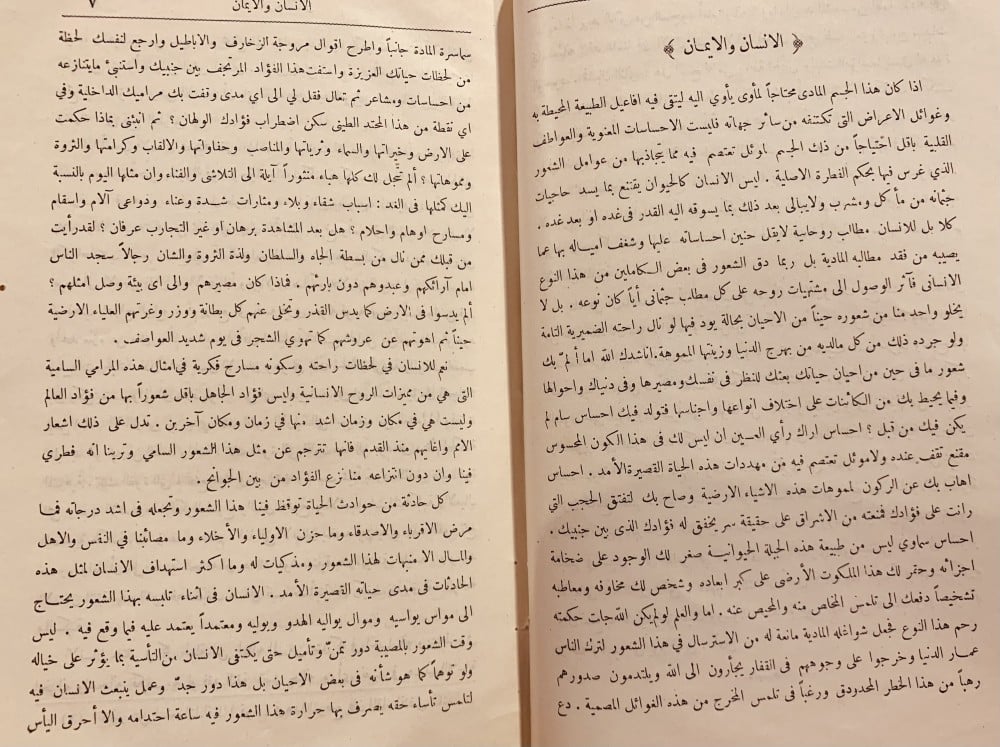 ﴿ الانسان والايمان ﴾
اذا كان هذا الجسم المادى محتاجاً لمأوى يأوي اليه ليتقي فيه افاعيل الطبيعة المحيطة به
وغوائل الاعراض التى تكتنفه من سائر جهاته فليست الاحساسات المعنوية والعواطف
القلبية باقل احتياجاً من ذلك الجسم لموئل تعتصم فيه مما يتجاذبها من عوامل الشعور
الذي غرس فيها بحكم الفطرة الاصلية . ليس الانسان كالحيوان يقتنع بما يسد حاجيات
جثمانه من مأكل ومشرب ولايبالى بعد ذلك بما يسوقه اليه القدر فى غده او بعد غده .
كلا بل للانسان مطالب روحانية لايقل حنين احساساته عليها وشغف امياله بها عما
يصيبه من فقد مطالبه المادية بل ربما دق الشعور فى بعض الكاملين من هذا النوع
الانسانى فآثر الوصول الى مشتهيات روحه على كل مطلب جثمانى أياً كان نوعه . بل لا
يخلو واحد منا من شعوره حيناً من الاحيان بحالة يود فيها لو نال راحته الضميرية التامة
ولو جرده ذلك من كل مالديه من بهرج الدنيا وزينتها المموهة. اناشدك الله اما ألمّ بك
شعور ما فى حين من احيان حياتك بعثك للنظر فى نفسك ومصيرها وفى دنياك واحوالها
وفيما يحيط بك من الكائنات على اختلاف انواعها واجناسها فتولد فيك احساس سام لم
يكن فيك من قبل ؟ احساس اراك رأي العين ان ليس لك فى هذا الكون المحسوس
مقنع تقف عنده ولاموئل تعتصم فيه من مهددات هذه الحياة القصيرة الأمد . احساس
اهاب بك عن الركون لمموهات هذه الاشياء الارضية وصاح بك لتفتق الحجب التي
رانت على فؤادك فمنعته من الاشراق على حقيقة سر يخفق له فؤادك الذى بين جنبيك .
احساس سماوي ليس من طبيعة هذه الجبلة الحيوانية صغر لك الوجود على ضخامة
اجزائه وحقر لك هذا الملكوت الأرضى على كبر ابعاده وشخص لك مخاوفه ومعاطبه
تشخيصاً دفعك الى تلمس المخاص منه والمحيص عنه . اما والعلم لولم يكن الله جلت حكمته
رحم هذا النوع فجعل شواغله المادية مانعة له من الاسترسال في هذا الشعور لترك الناس
عمار الدنيا وخرجوا على وجوههم فى القفار يجأرون الى الله ويلتدمون صدورهم
رهباً من هذا الخطر المحدردق ورغباً فى تلمس المخرج من هذه الغوائل المصمية . دع
الانسان والايمان ٧
سماسرة المادة جانباً واطرح اقوال مروجة الزخارف والاباطيل وارجع لنفسك لحظة
من لحظات حياتك العزيزة واستفت هذا الفؤاد المرتجف بين جنبيك واستنبئ مايتنازعه
من احساسات ومشاعر ثم تعال فقل لي الى اي مدى وقفت بك مراميك الداخلية وفي
اي نقطة من هذا المحتد الطيني سكن اضطراب فؤادك الولهان ؟ ثم انبئنى بماذا حكمت
على الارض وخيراتها والسماء وثرياتها والمناصب وحفاواتها والالقاب وكرامتها والثروة
ومموهاتها ؟ ألم تتجل لك كلها هباء منثوراً آيلة الى التلاشى والفناء وان مثلها اليوم بالنسبة
اليك كمثلها فى الغد : اسباب شقاء وبلاء ومثارات شدة وعناء ودواعى آلام واسقام
ومسارح اوهام واحلام ؟ هل بعد المشاهدة برهان او غير التجارب عرفان ؟ لقد رأيت
من قبلك ممن نال من بسطة الجاه والسلطان ولذة الثروة والشان رجالاً سجد الناس
امام آرائكهم وعبدوهم دون بارئهم . فماذا كان مصيرهم والى اى بيئة وصل امثلهم ؟
ألم يدسوا فى الارض كما يدس القذر وتخلى عنهم كل بطانة ووزر وغرتهم العلياء الارضية
حيناً ثم اهوتهم عن عروشهم كما تهوي الشجر فى يوم شديد العواصف .
نعم للانسان في لحظات راحته وسكونه مسارح فكرية في امثال هذه المرامي السامية
التى هي من مميزات الروح الانسانية وليس فؤاد الجاهل باقل شعوراً بها من فؤاد العالم
وليست هي فى مكان وزمان اشد منها في زمان ومكان آخرين . تدل على ذلك اشعار
الامم واغانيهم منذ القدم فانها تترجم عن مثل هذا الشعور السامي وترينا انه فطري
فينا وان دون انتزاعه منا نزع الفؤاد من بين الجوانح .
كل حادثة من حوادث الحياة توقظ فينا هذا الشعور وتجعله فى اشد درجاته فما
مرض الاقرباء والاصدقاء وما حزن الاولياء والأخلاء وما مصائبنا في النفس والاهل
والمال الا منبهات لهذا الشعور ومذكيات له وما اكثر استهداف الانسان لمثل هذه
الحادثات فى مدى حياته القصيرة الأمد . الانسان فى اثناء تلبسه بهذا الشعور يحتاج
الى مواس يواسيه وموال يواليه الهدو ويوليه ومعتمداً يعتمد عليه فيما وقع فيه . ليس
وقت الشعور بالمصيبة دور تمنّ وتأميل حتى يكتفى الانسان من التأسية بما يؤثر على خياله
ولو توهماً كما هو شأنه فى بعض الاحيان بل هذا دور جدّ وعمل ينبعث الانسان فيه
لتلمس تأساء حقه يصرف بها حرارة هذا الشعور فيه ساعة احتدامه والا أحرق اليأس